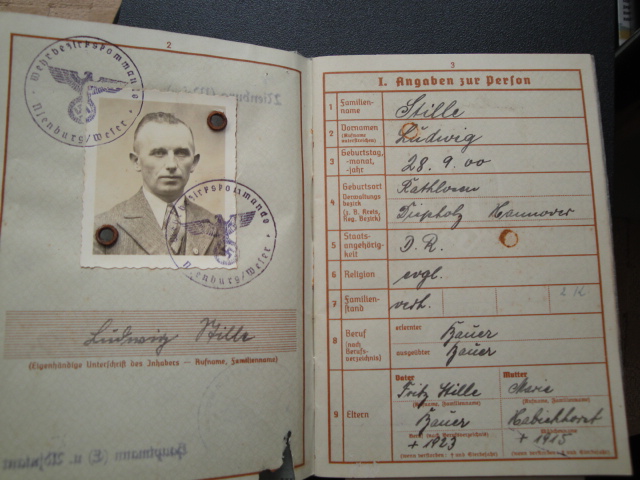 2
Wehrbezirkskommando
Nienburg/Weser
Wehrbezirkskommando
Nienburg/Weser
Ludwig Stille
(Eigenhändige Unterschrift des Inhabers — Rufname, Familienname)
Hauptmann (E) u.
3
I. Angaben zur Person
1 Familien-
name
Stille
2 Vornamen
(Rufname
unterstreichen)
Ludwig
3 Geburtstag,
-monat,
-jahr
28. 9. 00
4 Geburtsort
Verwaltungs-
bezirk
(z. B. Kreis,
Reg. Bezirk)
Rathlosen
Diepholz Hannover
5 Staats-
angehörig-
keit
D. R.
6 Religion
evgl.
7 Familien-
stand
verh.
2 K
8 Beruf
(nach
Berufs-
verzeichnis)
erlernter
Bauer
ausgeübter
Bauer
9 Eltern
Vater
Fritz Stille
(Rufname, Familienname)
Bauer
Beruf (nach Berufsverzeichnis)
+ 1923
(wenn verstorben: † und Sterbejahr)
Mutter
Marie
(Rufname, Familienname)
Habichhorst
Mädchenname
+ 1915
(wenn verstorben: † und Sterbejahr)